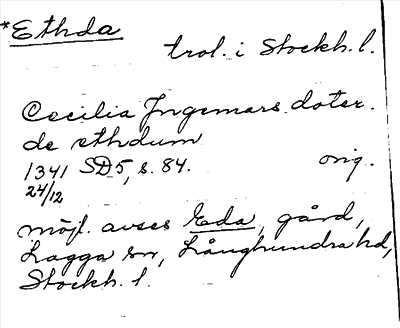 *Ethda
trol. i Stockh. l.
Cecilia Ingemars doter.
de ethdum
1341 SD5, s. 84. orig.
24/12
möjl. avses Eda, gård,
Lagga sn, Långhundra hd,
Stockh. l.